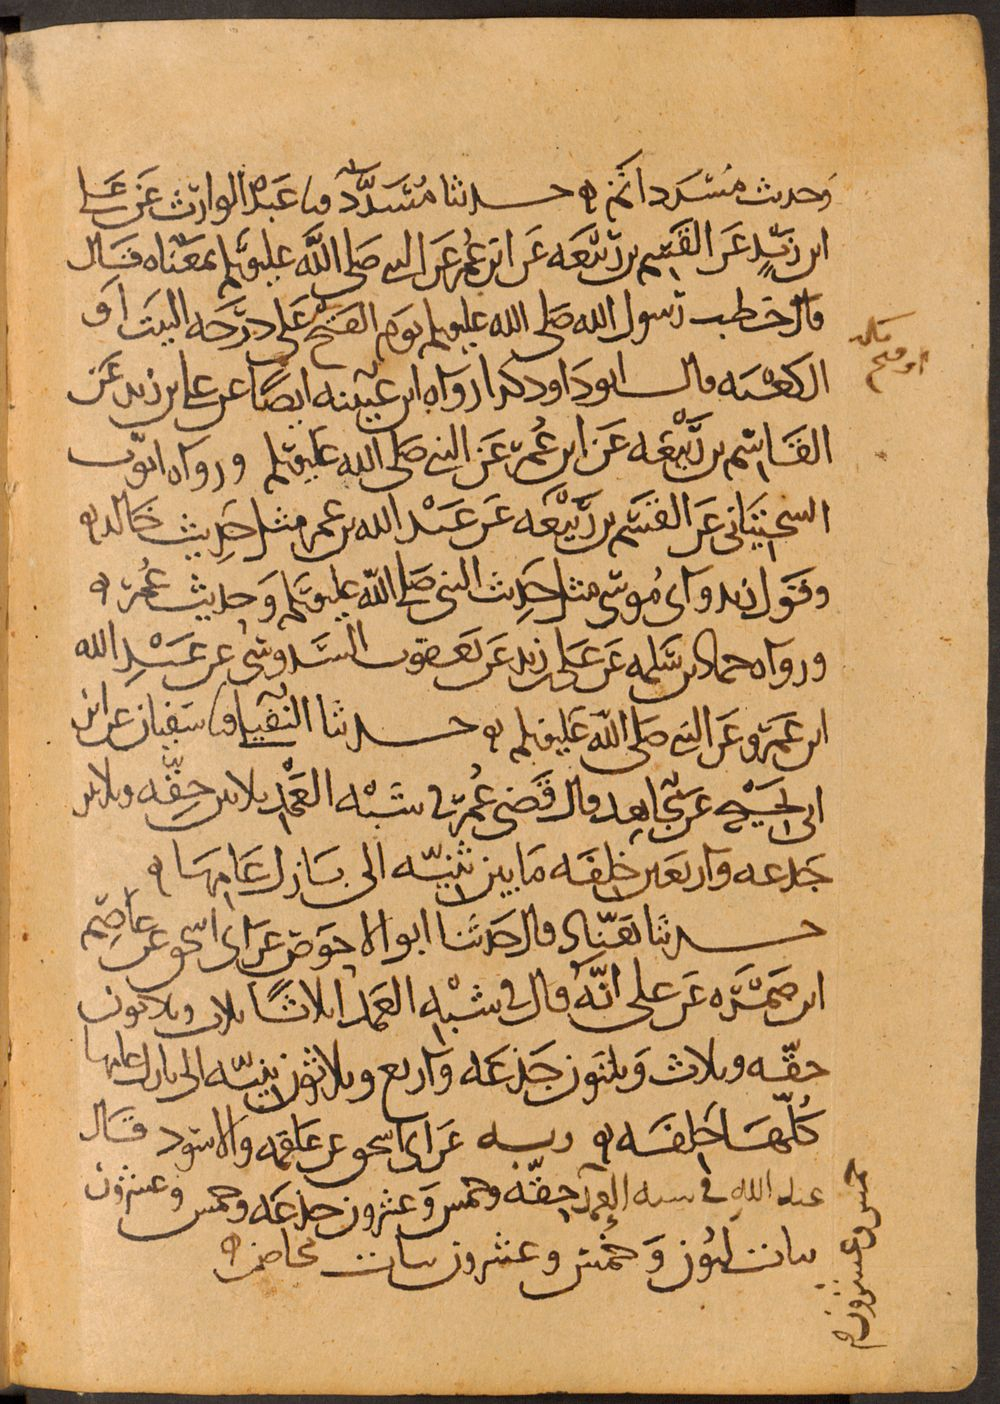 وحديث مسدد اتم ه حدثنا مسدد نا عبد الوارث عن علي
ابن زيد عن القسم بن ربيعه عن ابن عمر عن النبي صلى الله عليه وسلم بمعناه قال
قال خطب رسول الله صلى الله عليه وسلم يوم الفتح على درجه البيت او
الكعبه قال ابو داود كذا رواه ابن عيينه ايضا عن علي بن زيد عن
القاسم بن ربيعه عن ابن عمر عن النبي صلى الله عليه وسلم ورواه ايوب
السختياني عن القسم بن ربيعه عن عبد الله بن عمر مثل حديث خالد ه
وقول زيد وابي موسى مثل حديث النبي صلى الله عليه وسلم وحديث عمر ه
ورواه حماد بن سلمه عن علي بن زيد عن يعقوب السدوسي عن عبد الله
ابن عمرو عن النبي صلى الله عليه وسلم ه حدثنا النفيلي نا سفيان عن ابن
ابي نجيح عن مجاهد قال قضى عمر في شبه العمد ثلاثين حقه وثلاثين
جذعه واربعين خلفه ما بين ثنيه الى بازل عامها ه
حدثنا هناد قال حدثنا ابو الاحوص عن ابي اسحق عن عاصم
ابن ضمره عن علي انه قال في شبه العمد اثلاثا ثلاث وثلاثون
حقه وثلاث وثلثون جذعه واربع وثلاثون ثنيه الى بازل عامها
كلها خلفه ه وبه عن ابي اسحق عن علقمه والاسود قال
عبد الله في شبه العمد حقه وخمس وعشرون جذعه وخمس وعشرون
بنات لبون وخمس وعشرون بنات مخاض ه
خمس وعشرون